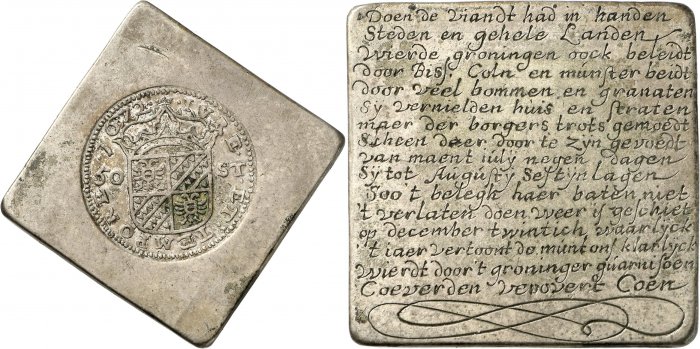 1672
IVRE ET TEMPORE
50 ST
Doen de viandt had in handen
Steden en gehele Landen
Wierde groningen oock beleidt
door Biss: Coln en munster beidt
door veel bommen en granaten
Sy vernielden huis en straten
maer der borgers trots gemoedt
Scheen daer door te zyn gevoedt
van maent iuly negen dagen
Sy tot Augusty Seftyn lagen
Zoo't belegh haer baten niet
't verlaten doen weer is geschiet
op december twintich waarlyck
't iaer vertoont de munt ons klarlyck
Wierdt door't groninger guarnisoen
Coeverden verovert Coen